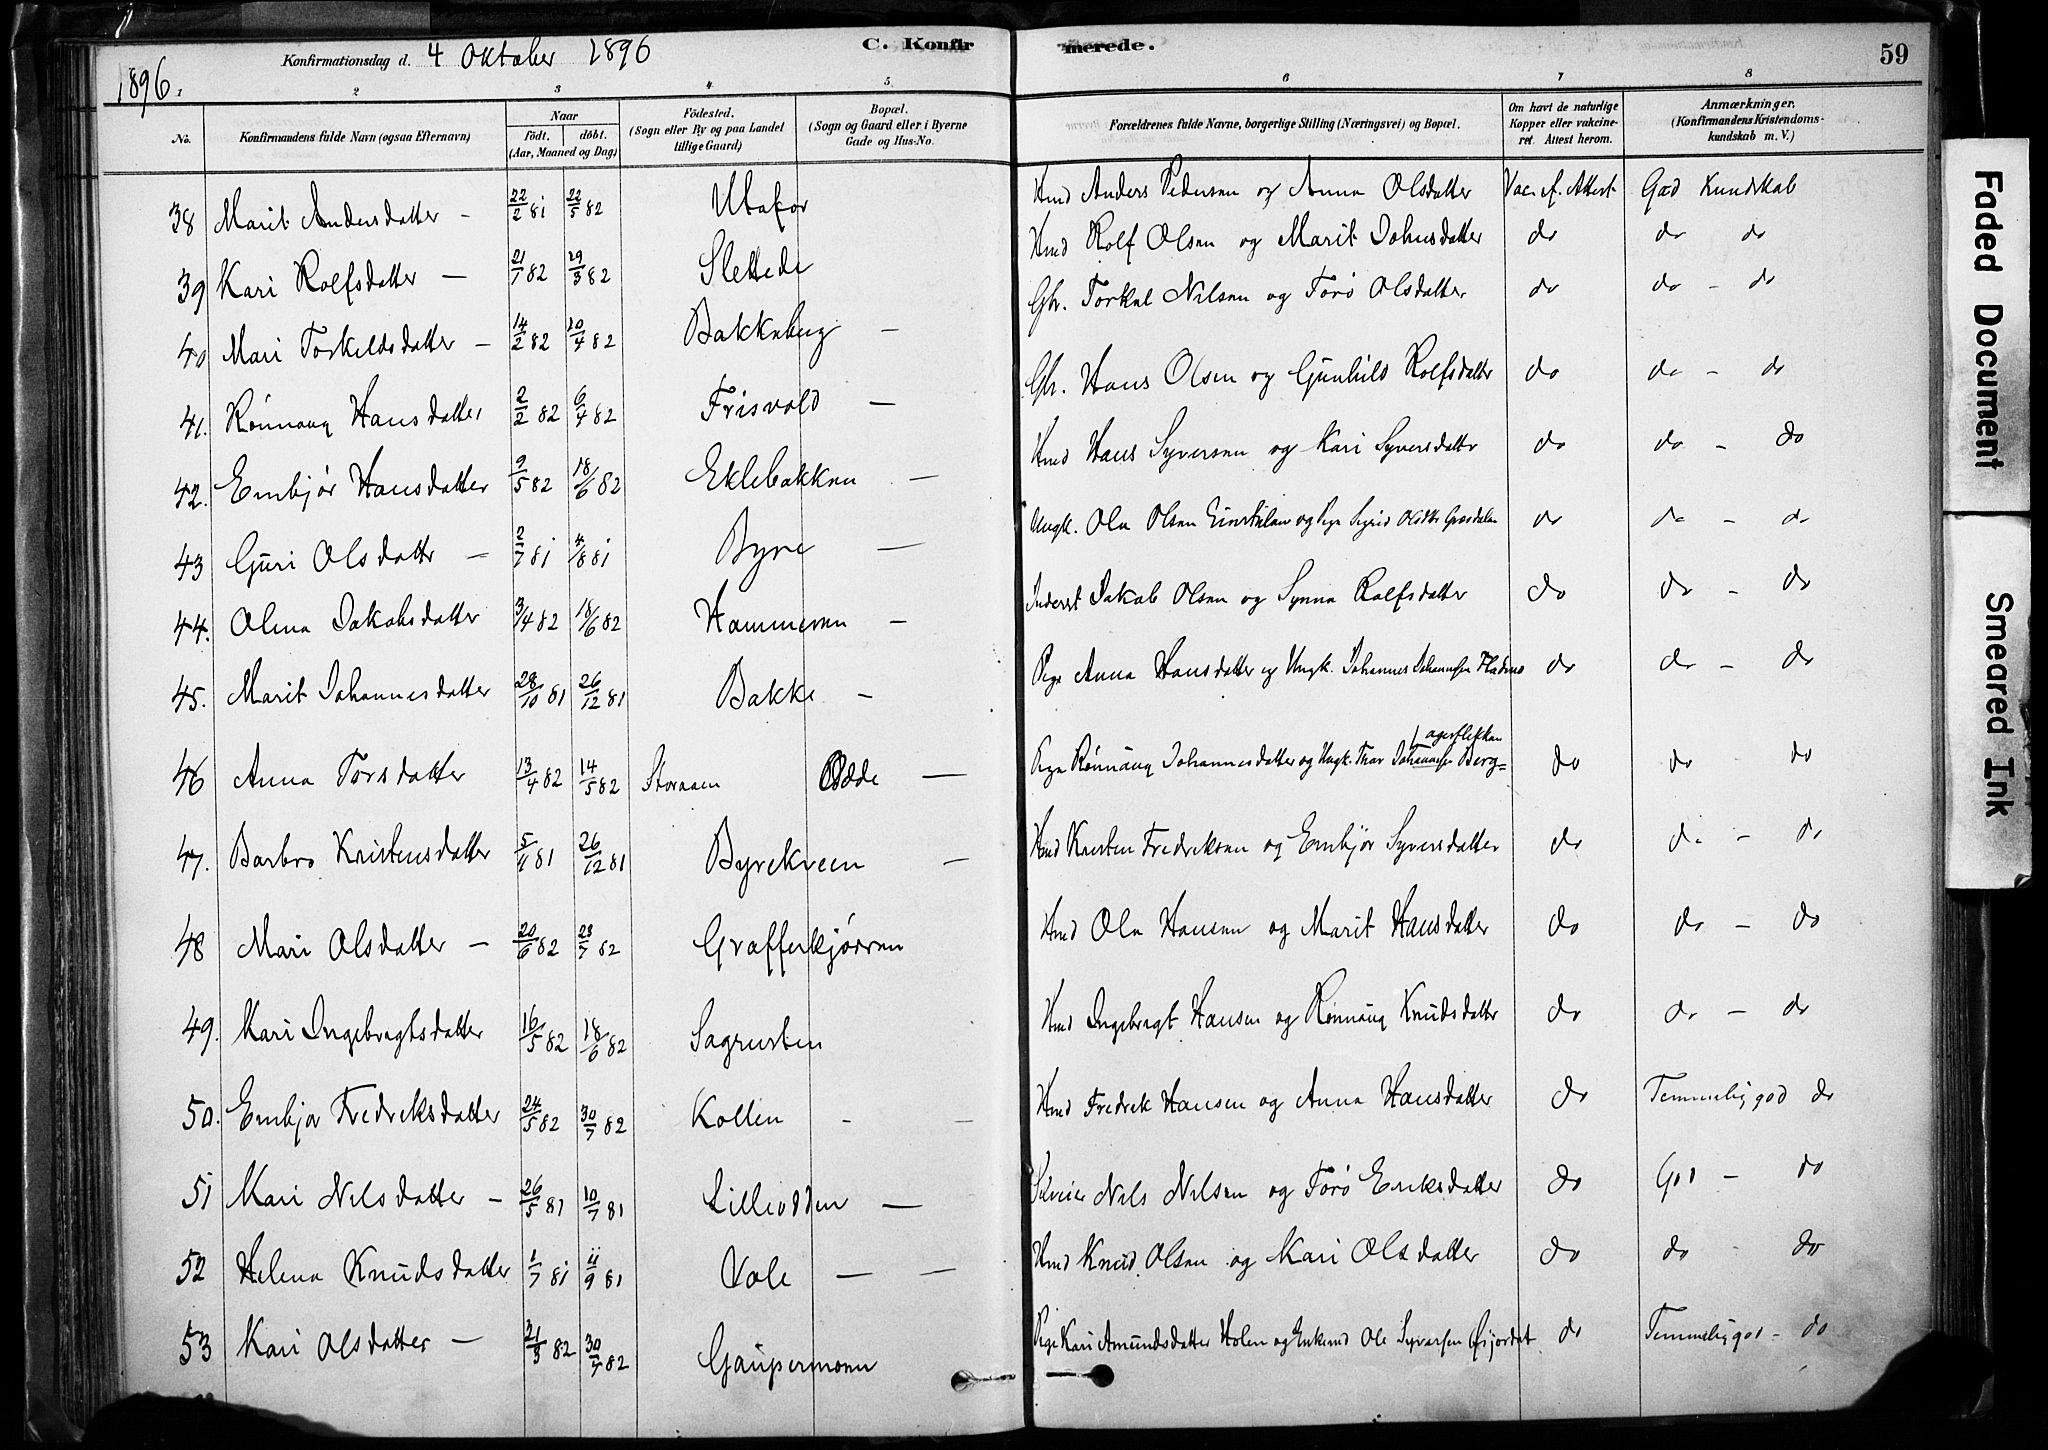 Konfirmationsdag d. 4 Oktober 1896 C. Konfirmerede. 59
1896
1 2 3 4 5 6 7 8
No. Konfirmandens fulde Navn (ogsaa Efternavn) Naar födt. döbt. (Aar, Maaned og Dag) Födested. (Sogn eller By og paa Landet tillige Gaard) Bopæl. (Sogn og Gaard eller i Byerne Gade og Hus-No. Forældrenes fulde Navne, borgerlige Stilling (Næringsvei) og Bopæl. Om havt de naturlige Kopper eller vakcineret. Attest herom. Anmærkninger. (Konfirmandens Kristendomskundskab m. V.)
38 Marit Andersdatter - 22/2 81 22/5 82 Utafor Hmd Anders Pedersen og Anna Olsdatter Vac. f. Attest God Kundskab
39 Kari Rolfsdatter - 21/1 82 29/3 82 Slettede Hmd Rolf Olsen og Marit Johnsdatter do do do
40 Mari Torkildsdatter - 14/2 82 20/4 82 Bakkeberg - Gbr. Torkel Nilsen og Torö Olsdatter do do - do
41. Rönnaug Hansdatter 2/2 82 6/4 82 Frisvold - Gbr. Hans Olsen og Gunhild Rolfsdatter do do - do
42. Embjör Hansdatter 9/5 82 18/6 82 Eklebakken - Hmd Hans Syversen og Kari Syversdatter do do - do
43 Guri Olsdatter - 2/7 81 4/8 81 Byre - Ungk. Ola Olsen og Pige Sigrid Olsdtr do do - do
44. Olena Jakobsdatter 3/4 82 18/6 82 Hammeren - Inderst Jakob Olsen og Synna Rolfsdatter do do - do
45. Marit Johannesdatter 28/10 81 26/12 81 Bakke - Pige Anna Hansdatter og Ungk. Johannes Johannesen do do - do
46 Anna Torsdatter 13/4 82 14/5 82 Storaaen Odde - Pige Rönnaug Johannesdatter og Ungk. Thor Johannesen Berg= do do - do
47. Barbro Kristensdatter 5/11 81 26/12 81 Byrekveen - Hmd Kristen Fredriksen og Embjör Syversdatter do do - do
48 Mari Olsdatter - 20/6 82 23/7 82 Grafferkjörren Hmd Ola Hansen og Marit Hansdatter do do - do
49. Kari Ingebregtsdatter 16/5 82 18/6 82 Sagrusten Hmd Ingebregt Hansen og Rönnaug Knudsdatter do do - do
50. Embjör Fredriksdatter 24/5 82 30/7 82 Kollen - - Hmd Fredrik Hansen og Anna Hansdatter do Temmelig god do
51 Mari Nilsdatter - 26/5 81 10/7 81 Lilleodden - Selveier Nils Nilsen og Torö Eriksdatter do God - do
52 Helena Knudsdatter 1/7 81 11/9 81 Vole - - Hmd Knud Olsen og Mari Olsdatter do do - do
53 Kari Olsdatter - 21/3 82 30/7 82 Gaupermoen Pige Kari Amundsdatter Holen og Enkemd Ole Syversen do Temmelig god - do
Faded Document
Smeared Ink